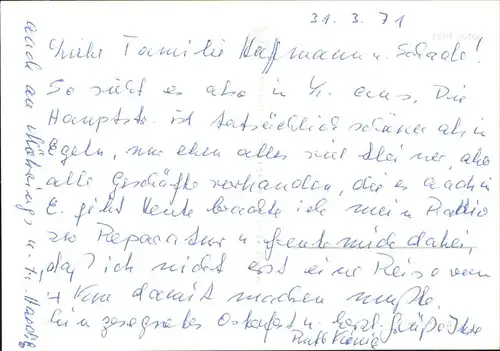 31. 3. 71
Liebe Familie Hoffmann u. Schade!
So sieht es also in U. aus. Die
Hauptstr. ist tatsächlich schöner als in
Egeln, nur eben alles viel kleiner, aber
alle Geschäfte vorhanden, die es auch in
E. gibt. Heute brachte ich mein Radio
zur Reparatur u. freute mich dabei,
daß ich nicht erst eine Reise von
km damit machen mußte.
Ein gesegnetes Osterfest u. herzl. Grüße Ihre
Ruth König
auch an u. Fr.